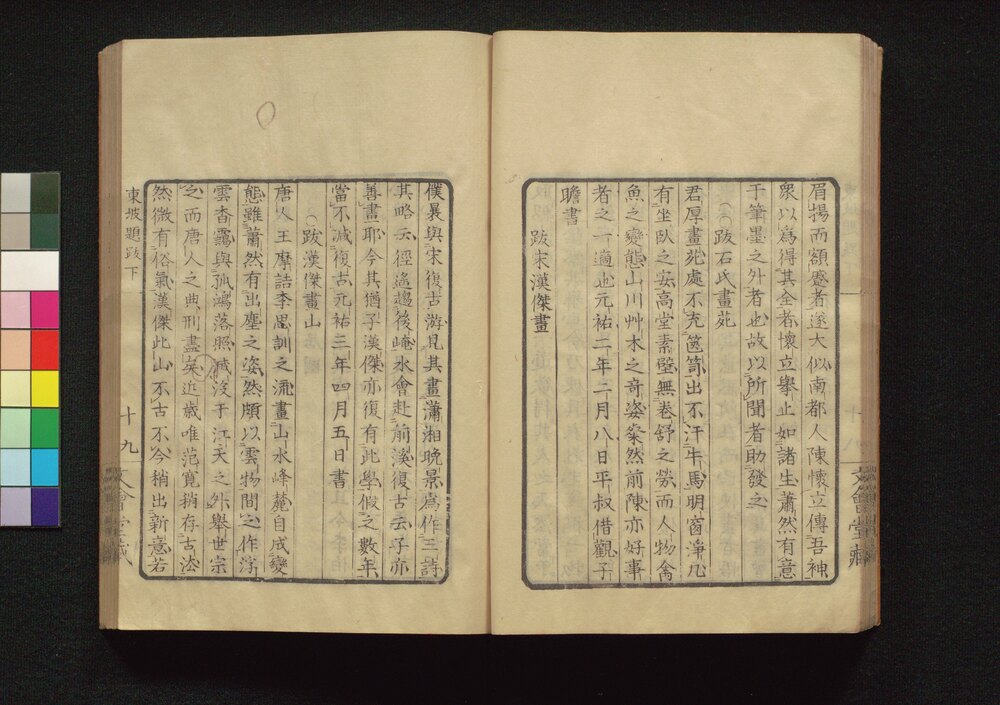 眉揚而額蹙者遂大似南都人陳懷立傳吾神
衆以爲得其全者懷立舉止如諸生蕭然有意
于筆墨之外者也故以所聞者助發之
跋石氏畫苑
君厚畫苑處不充篋笥出不汗牛馬明窗淨几
有坐臥之安高堂素壁無卷舒之勞而人物禽
魚之變態山川艸木之奇姿粲然前陳亦好事
者之一適也元祐二年二月八日平叔借觀子
瞻書
跋宋漢傑畫
文會堂藏
僕曩與宋復古游見其畫瀟湘晚景爲作三詩
其略云徑遙趨後崦水會赴前溪復古云子亦
善畫耶今其猶子漢傑亦復有此學假之數年
當不減復古元祐三年四月五日書
跋漢傑畫山
唐人王摩詰李思訓之流畫山水峰麓自成變
態雖蕭然有出塵之姿然頗以雲物間之作浮
雲杳靄與孤鴻落照滅沒于江天之外舉世宗
之而唐人之典刑盡矣近歲唯范寬稍存古法
然微有俗氣漢傑此山不古不今稍出新意若
東坡題跋下
十九
文會堂藏